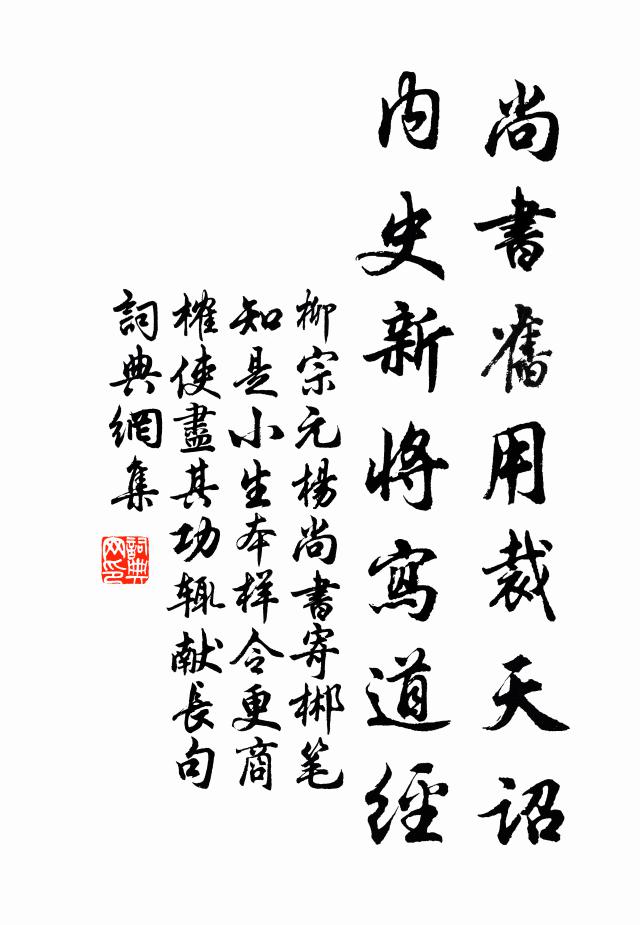 尚書舊用裁天詔
內史新將寫道經
柳宗元楊尚書寄郴笔
知是小生本样令更商
榷使盡其功辄献長句
詞典網集
詞典
网印